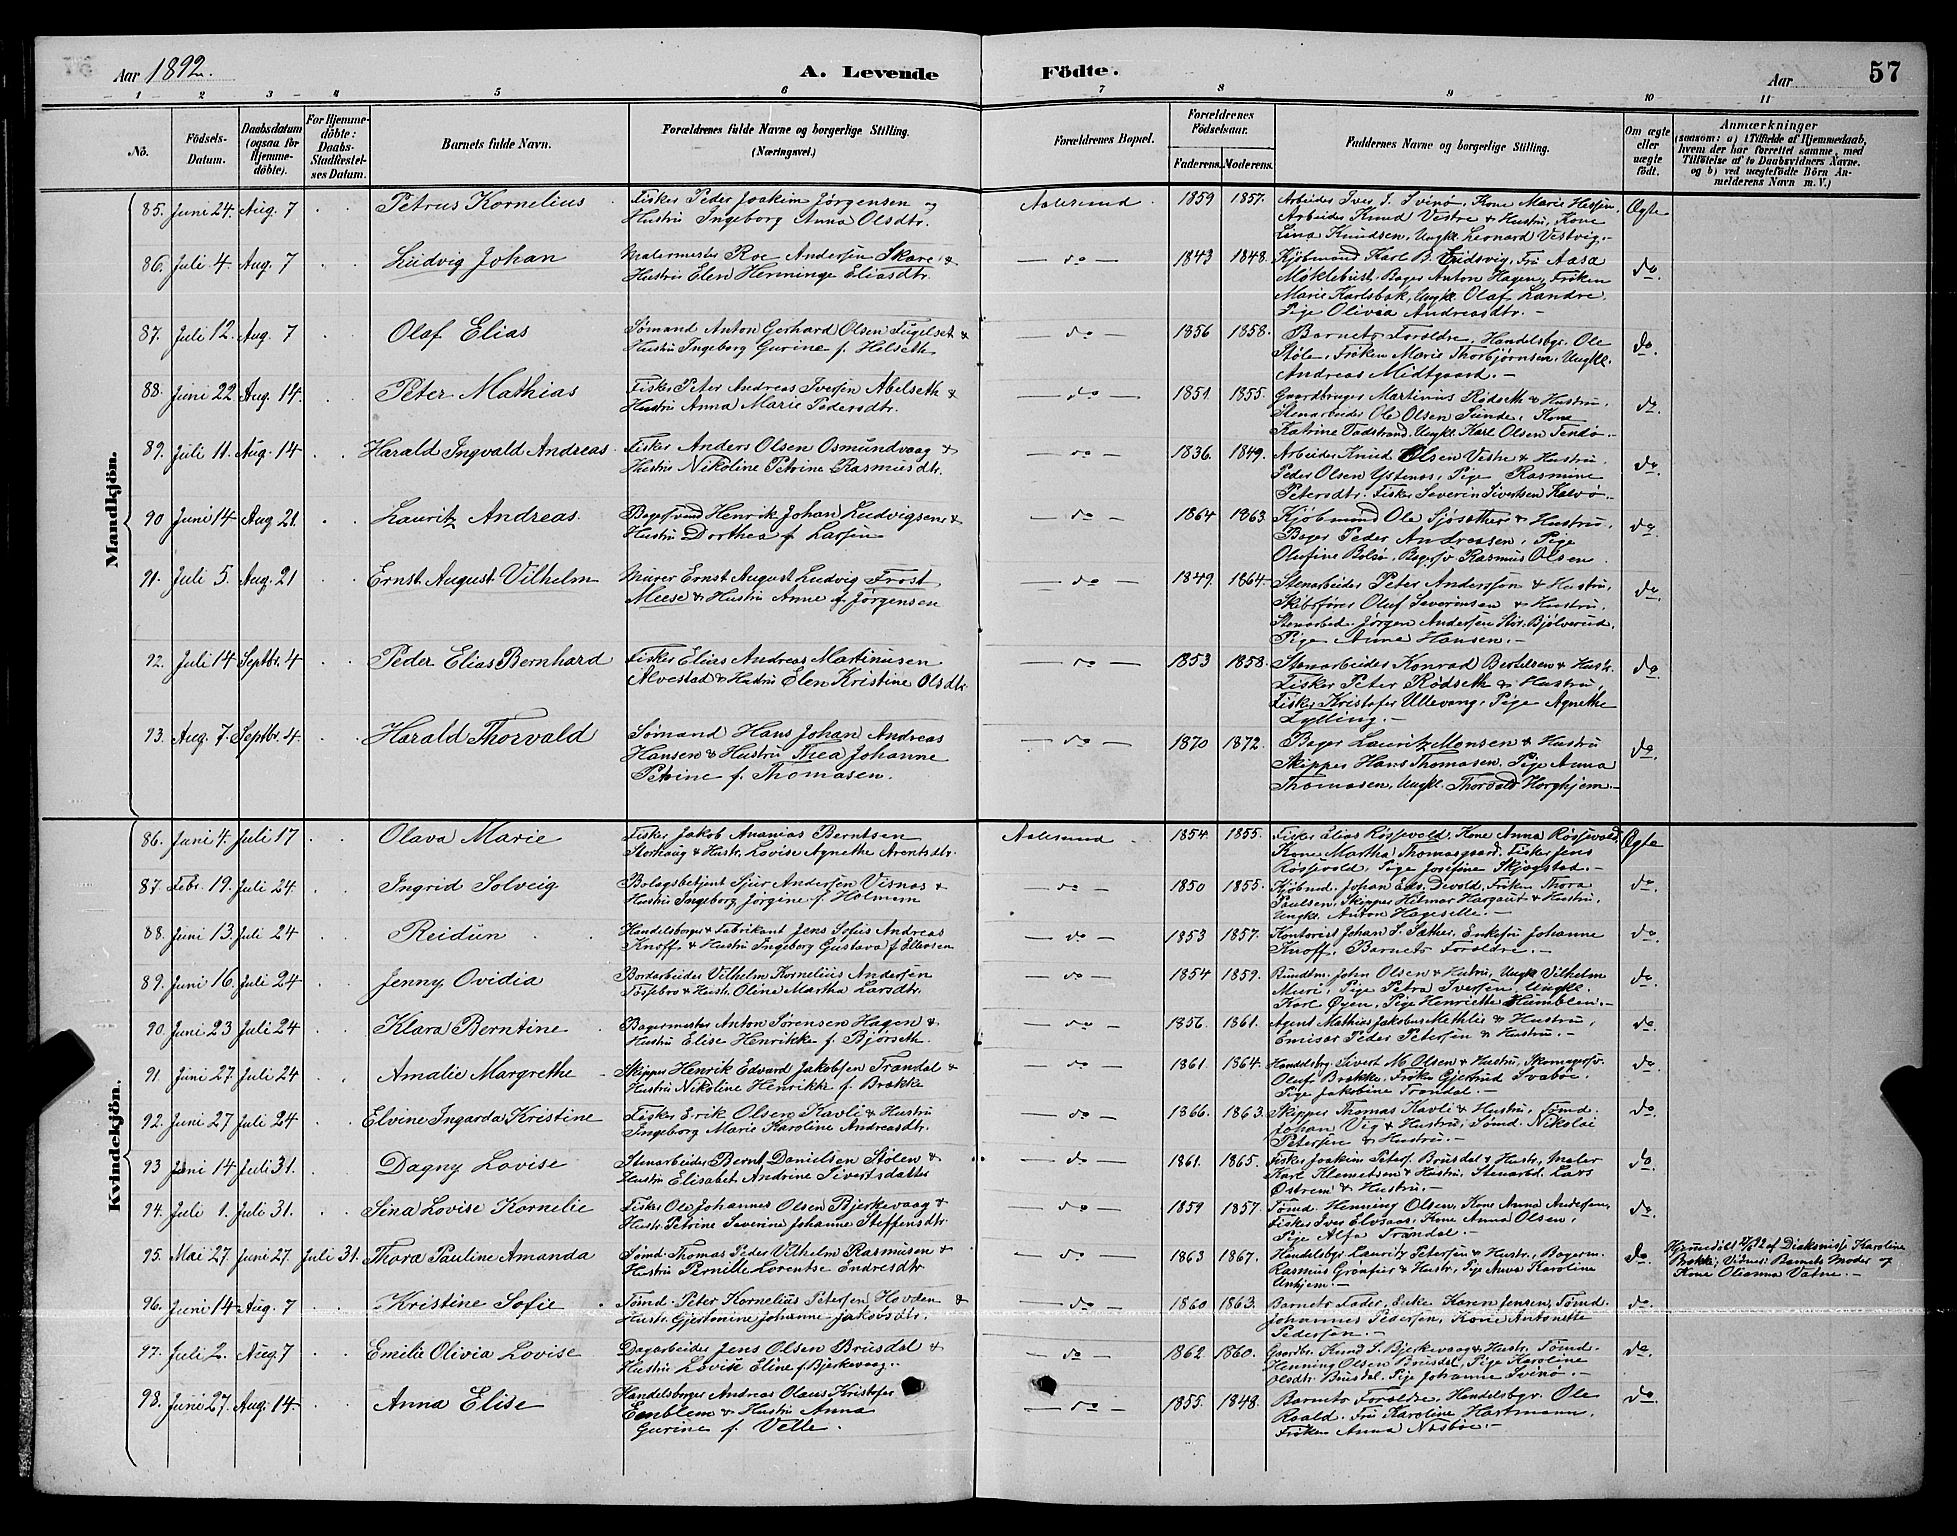 Aar 1892.
A. Levende Fødte.
Aar
57
1 2 3 4 5 6 7 8 9 10 11
No.
Fødsels-Datum.
Daabsdatum (ogsaa for Hjemmedöbte).
For Hjemmedöbte: Daabs-Stadfæstelses Datum.
Barnets fulde Navn.
Forældrenes fulde Navne og borgerlige Stilling. (Næringsvei.)
Forældrenes Bopæl.
Forældrenes Födselsaar.
Faderens. Moderens.
Faddernes Navne og borgerlige Stilling.
Om ægte eller uægte født.
Anmærkninger
(saasom: a) i Tilfælde af Hjemmedaab, hvem der har forrettet samme, med Tilföielse af to Daabsvidners Navne. og b) ved uægtefödte Börn Anmelderens Navn m. V.)
Mandkjön.
85. Juni 24. Aug. 7 Petrus Kornelius Fisker Peder Joakim Jørgensen og Aalesund. 1859 1857. Arbeider Iver J. Svinø, Kone Marie Hessen, Ægte
Hustru Ingeborg Anna Olsdtr. Arbeider Knud Vestre & Hustru, Kone
Lina Knudsen, Ungkl. Leonard Vestvig.-
86. Juli 4. Aug. 7 Ludvig Johan Malermester Roe Andersen Skare & do 1843 1848. Kjøbmand Karl B. Eidsvig, Fru Aasa do.
Hustru Elen Henninge Eliasdtr. Møklebust, Bager Anton Hagen, Frøken
Marie Karlsbak, Ungkl. Olaf Landre,
Pige Olivea Andreasdtr.-
87. Juli 12. Aug. 7 Olaf Elias Sømand Anton Gerhard Olsen Fugelset & do 1856 1858. Barnets Forældre, Handelsbgr. Ole do.
Hustru Ingeborg Gurine f. Holseth Støle, Frøken Marie Thorbjørnsen, Ungkl.
Andreas Midtgaard.-
88. Juni 22 Aug. 14. Peter Mathias Fisker Peter Andreas Iversen Abelseth & do 1851 1855. Gaardbruger Martinus Rødseth & Hustru, do.
Hustru Anna Marie Pedersdtr. Stenarbeider Ole Olsen Sunde, Kone
Katrine Tadstrand, Ungkl. Karl Olsen Tendø.-
89. Juli 11. Aug. 14 Harald Ingvald Andreas Fisker Anders Olsen Osmundvaag & do 1836 1849. Arbeider Knud Olsen Vestre & Hustru, do.
Hustru Nikoline Petrine Rasmusdtr. Peder Olsen Ystenes, Pige Rasmine
Petersdtr. Fisker Severin Sivertsen Kalvø.-
90 Juni 14 Aug 21. Lauritz Andreas. Bagersvend Henrik Johan Ludvigsen & do 1864 1863. Kjøbmand Ole Sjøsather & Hustru, do.
Hustru Dorthea f. Larsen Bager Peder Andreasen, Pige
Olufine Bolsø, Bagersv. Rasmus Olsen.
91. Juli 5. Aug. 21 Ernst August Vilhelm Murer Ernst August Ludvig Frost do 1849. 1864. Stenarbeider Peter Anderssen & Hustru, do.
Meese & Hustru Anne f. Jørgensen Skibsfører Oluf Severinsen & Hustru,
Stenarbeid. Jørgen Andersen Bjølverud,
Pige Anne Hansen.-
92. Juli 14 Septbr. 4 Peder Elias Bernhard Fisker Elias Andreas Martinusen do 1853 1858. Stenarbeider Konrad Bertelsen & Hustr. do
Alvestad & Hustru Elen Kristine Olsdtr. Fisker Peter Rødseth & Hustru,
Fisker Kristofer Ullevang, Pige Agnethe
Lylling.-
93. Aug. 7. Septbr. 4. Harald Thorvald Sømand Hans Johan Andreas do 1870 1872. Bager Lauritz Monsen & Hustru do.
Hansen & Hustru Thea Johanne Skipper Hans Thomasen, Pige Anna
Petrine f. Thomasen. Thomasen, Ungkl. Thorvald Horghjem.-
Kvindekjön.
86. Juni 4. Juli 17 Olava Marie Fisker Jakob Ananias Berntsen Aalesund 1854 1855. Fisker Elias Røssevold, Kone Anna Røssevold, Ægte
Storhaug & Hustr. Lovise Agnethe Arentsdtr. Kone Martha Thomasgaard, Fisker Jens
Røssevold, Pige Josefine Skjogstad.-
87 Febr. 19. Juli 24. Ingrid Solveig Bolagsbetjent Sjur Andersen Visnæs & do 1850 1855. Kjøbmd. Johan Devold, Frøken Thora do.
Hustru Ingeborg Jørgine f. Holmem Paulsen, Skipper Hilmar Hargaut & Hustru,
Ungkl. Anton Hageselle.-
88. Juni 13. Juli 24 Reidun Handelsborger & Fabrikant Jens Sofus Andreas do 1853 1857. Kontorist Johan S. Sæther, Enkefru Johanne do.
Knoff & Hustru Ingeborg Gustava f. Ellersen Knoff, Barnets Forældre.-
89. Juni 16. Juli 24 Jenny Ovidia Bordarbeider Vilhelm Kornelius Andersen do 1854 1859. Bundtm. John Olsen & Hustru, Ungkl. Vilhelm do.
Tossebro & Hustr. Oline Martha Larsdtr. Muri, Pige Petra Iversen, Ungkl.
Karl Øyen, Pige Henriette Humblen.-
90. Juni 23 Juli 24 Klara Berntine Bagermester Anton Sørensen Hagen & do 1856. 1861. Agent Mathias Jakobus Methlie & Hustru, do.
Hustru Elise Henrikke f. Bjørseth. Emisær Peder Petersen & Hustru.-
91 Juni 27 Juli 24 Amalie Margrethe Skipper Henrik Edvard Jakobsen Trandal & do 1861. 1864. Handelsbg. Sivert M. Olsen & Hustru, Skomagersv. do.
Hustru Nikoline Henrikke f. Brække Oluf Brække, Frøken Gjertrud Svabøe,
Pige Jakobine Trandal.-
92. Juni 27 Juli 24 Elvine Ingarda Kristine Fisker Erik Olsen Kavli & Hustru do 1866. 1863. Skipper Thomas Kavli & Hustru, Tømd. do.
Ingeborg Marie Karoline Andreasdtr. Johan Vig & Hustru, Sømd. Nikolai
Petersen & Hustru.-
93 Juni 14 Juli 31. Dagny Lovise Stenarbeider Bernt Danielsen Stølen & do 1861. 1865. Fisker Joakim Peters. Brusdal & Hustr. Maler do
Hustru Elisabet Andrine Sivertsdatter Karl Klemetsen & Hustru, Stenarbd. Lars
Østrem & Hustru.-
94. Juli 1. Juli 31. Sina Lovise Kornelie Fisker Ole Johannes Olsen Bjerkevaag & do 1859 1857. Tømd. Henning Olsen, Kone Anna Andersen, do.
Hustr. Petrine Severine Johanne Steffensdtr. Fisker Iver Elvsaas, Kone Anna Olsen,
Pige Alfa Trandal.-
95. Mai 27. Juni 27. Juli 31. Thora Pauline Amanda Sømd. Thomas Peder Vilhelm Rasmusen & do 1863 1867. Handelsbgr. Lauritz Petersen & Hustr., Bagerm. do. Hjemmedøbt af Diakonisse Karoline
Hustru Pernille Lorentse Endresdtr. Rasmus Grønfier & Hustr., Pige Anna Karoline Brække; Vidner: Barnets Moder og
Unhjem.- Kone Olianna Vatne.-
96. Juni 14 Aug. 7 Kristine Sofie Tømd. Peter Kornelius Petersen Hovden & do 1860 1863. Barnets Fader, Enke Karen Jensen, Tømd. do.
Hustr. Gjertonine Johanne Jakobsdtr. Johannes Pedersen, Kone Antonette
Pedersen.-
97. Juli 2. Aug 7 Emilie Olivia Lovise Dagarbeider Jens Olsen Brusdal & do 1862 1860. Gaardbr. Knud S. Bjerkevaag & Hustr. Tømd. do.
Hustru Lovise Eline f. Bjerkevaag. Henning Olsen Brusdal, Pige Karoline
Olsdtr. Brusdal, Pige Johanne Svinø.-
98. Juni 27. Aug. 14. Anna Elise Handelsborger Andreas Olaus Kristofer do 1855. 1848. Barnets Forældre, Handelsbgr. Ole do.
Emblem & Hustru Anna Roald, Fru Karoline Hartmann,
Gurine f. Velle. Frøken Anna Nosbøe.-